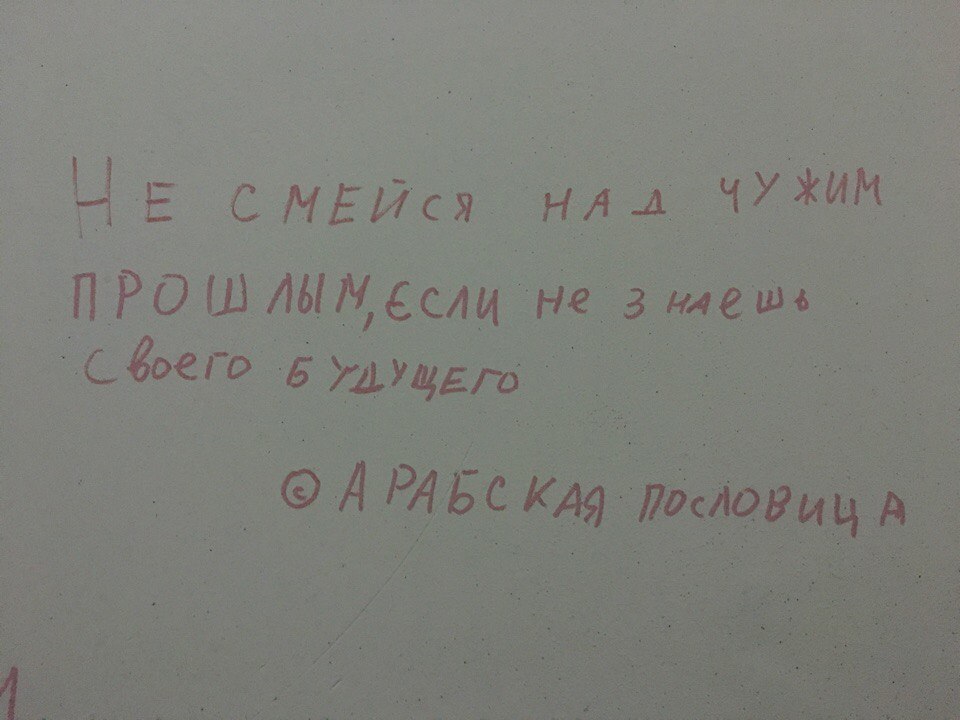 Не смейся над чужим
прошлым, если не знаешь
своего будущего
© Арабская пословица